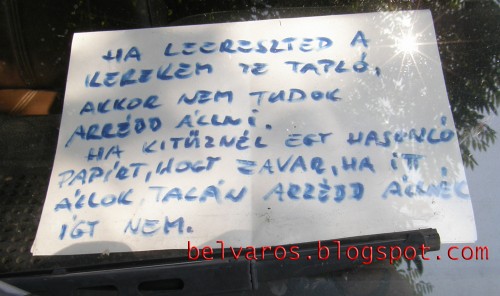 HA LEERESZTED A
KEREKEM TE TAPLÓ,
AKKOR NEM TUDOK
ARRÉBB ÁLLNI.
HA KITŰZNÉL EGY HASONLÓ
PAPÍRT, HOGY ZAVAR, HA ITT
ÁLLOK, TALÁN ARRÉBB ÁLLNÉK
ÍGY NEM.
belvaros.blogspot.com